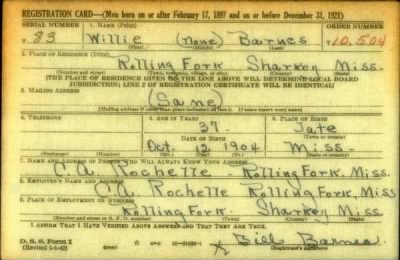 REGISTRATION CARD—(Men born on or after February 17, 1897 and on or before December 31, 1921)
SERIAL NUMBER 1. NAME (Print) ORDER NUMBER
83 Willie (None) Barnes 10,504
(First) (Middle) (Last)
2. PLACE OF RESIDENCE (Print)
Rolling Fork Sharkey Miss.
(Number and street) (Town, township, village, or city) (County) (State)
[THE PLACE OF RESIDENCE GIVEN ON THE LINE ABOVE WILL DETERMINE LOCAL BOARD
JURISDICTION; LINE 2 OF REGISTRATION CERTIFICATE WILL BE IDENTICAL]
3. MAILING ADDRESS
(Same)
[Mailing address if other than place indicated on line 2. If same insert word same]
4. TELEPHONE 5. AGE IN YEARS 6. PLACE OF BIRTH
37 Tate
DATE OF BIRTH (Town or county)
Oct. 12 1904 Miss.
(Mo.) (Day) (Yr.) (State or country)
7. NAME AND ADDRESS OF PERSON WHO WILL ALWAYS KNOW YOUR ADDRESS
C.A. Rochelle Rolling Fork, Miss.
8. EMPLOYER'S NAME AND ADDRESS
C.A. Rochelle Rolling Fork, Miss
9. PLACE OF EMPLOYMENT OR BUSINESS
Rolling Fork Sharkey Miss
(Number and street or R. F. D. number) (Town) (County) (State)
I AFFIRM THAT I HAVE VERIFIED ABOVE ANSWERS AND THAT THEY ARE TRUE.
D. S. S. Form 1
(Revised 1-1-42) (over) X Bill Barnes
(Registrant's signature)